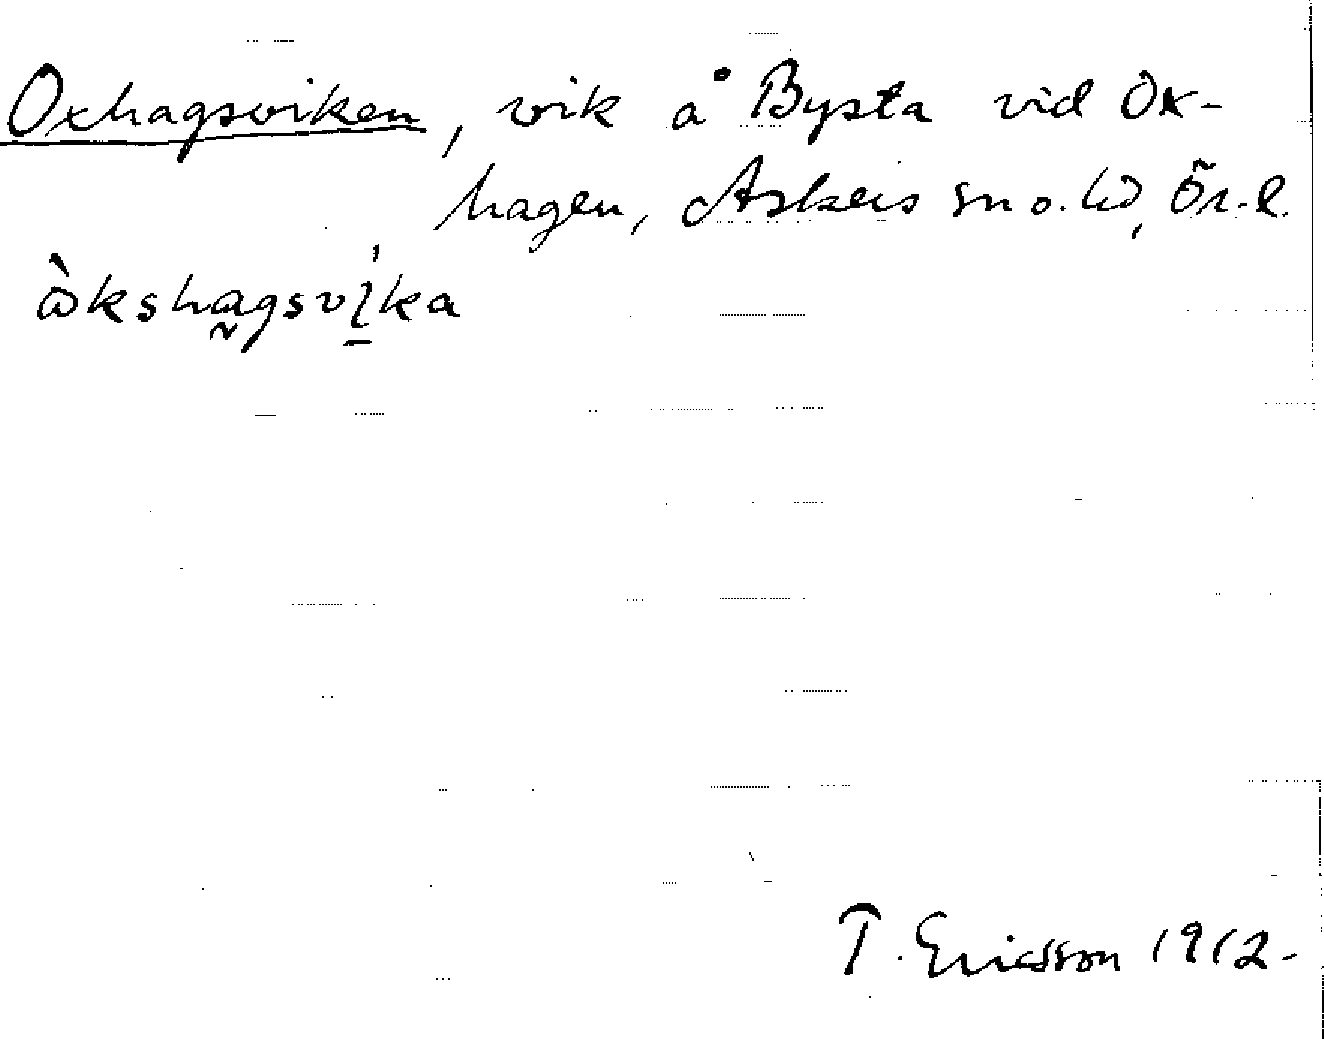 Oxhagsviken, vik å Bysta vid Ox-
hagen, Askers sn o. hd, Ör. l.
ɷ̀kshagsvi̠ka
T. Ericsson 1912-